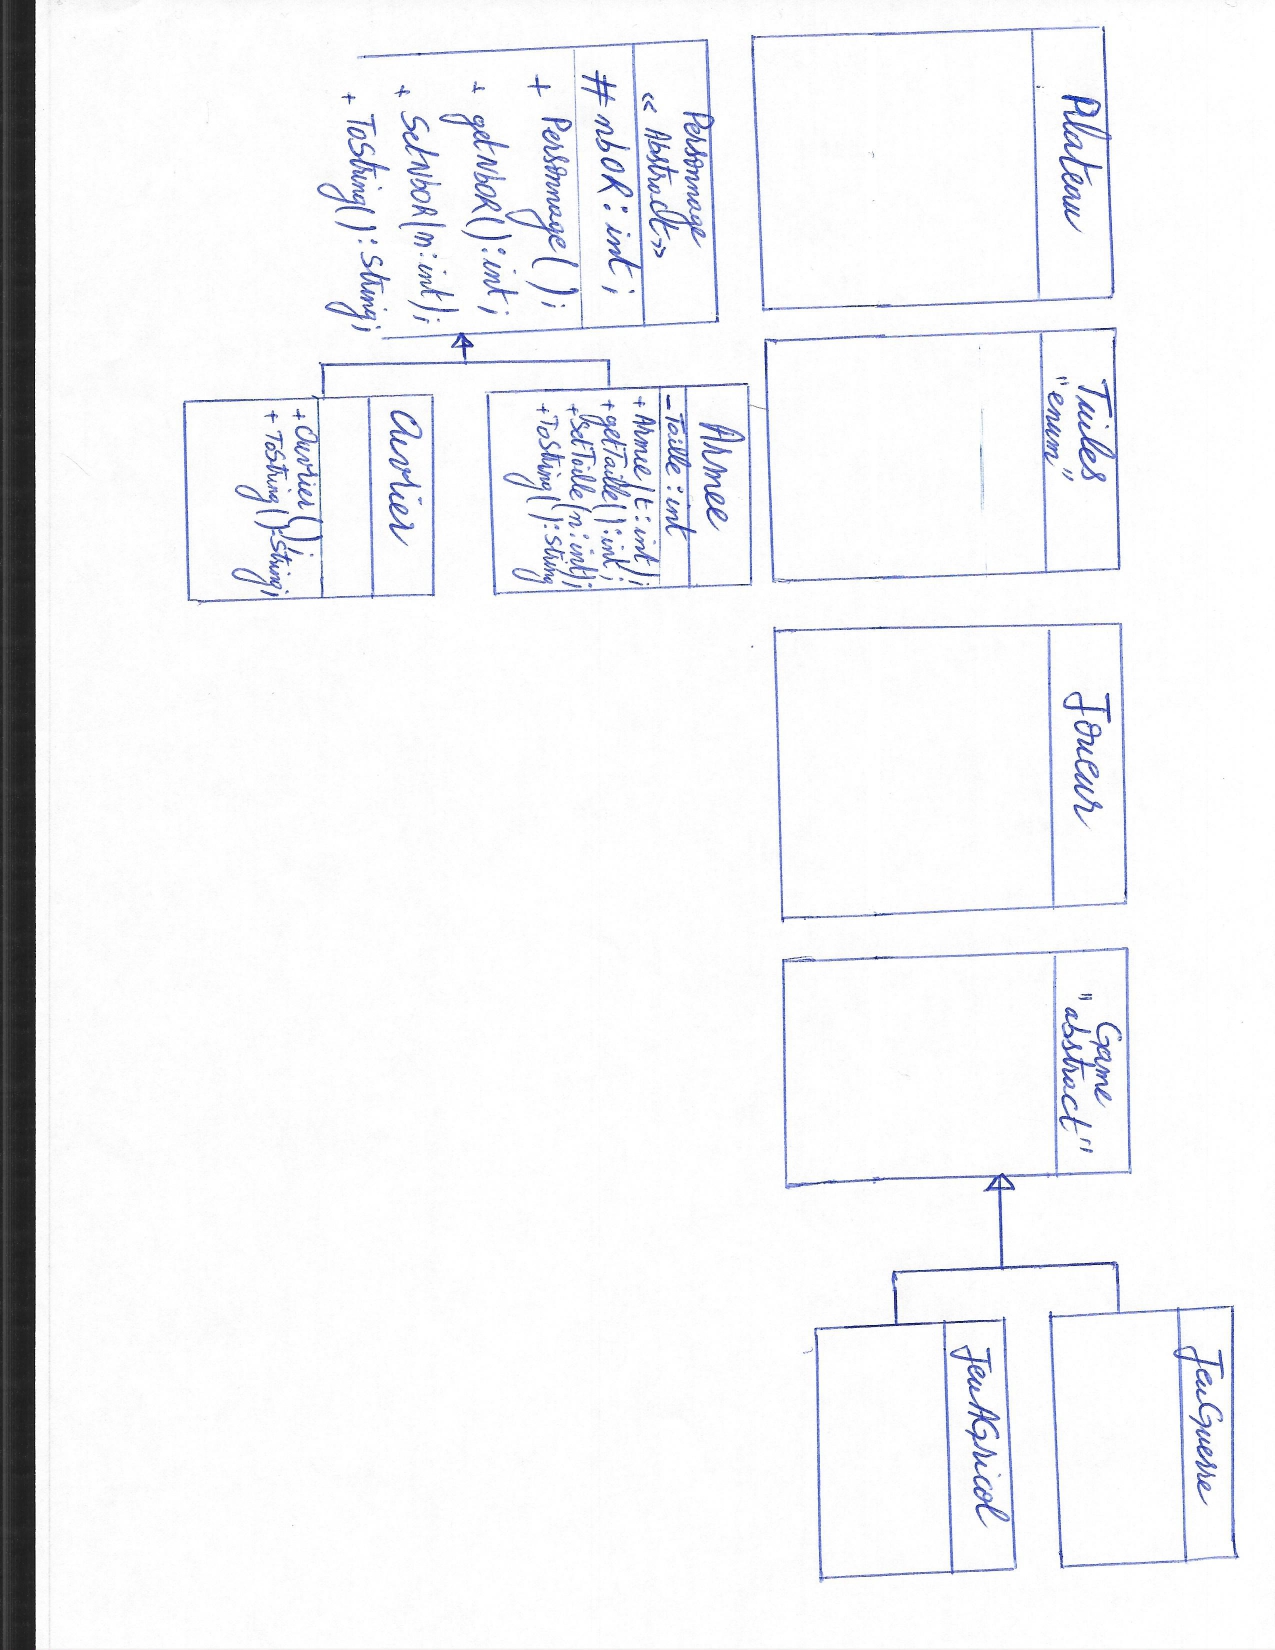 Plateau
Tuiles
"enum"
Joueur
Game
"abstract"
JeuGuerre
JeuAGricol
Personnage
<< Abstract>>
# nbOR : int ;
+ Personnage ( ) ;
+ getNbOR ( ) : int ;
+ SetNbOR (n : int) ;
+ ToString ( ) : String ;
Armee
- Taille : int
+ Armee ( t : int ) ;
+ getTaille ( ) : int ;
+ SetTaille (n : int) ;
+ ToString ( ) : String
Ouvrier
+ Ouvrier ( ) ;
+ ToString ( ) : String ;